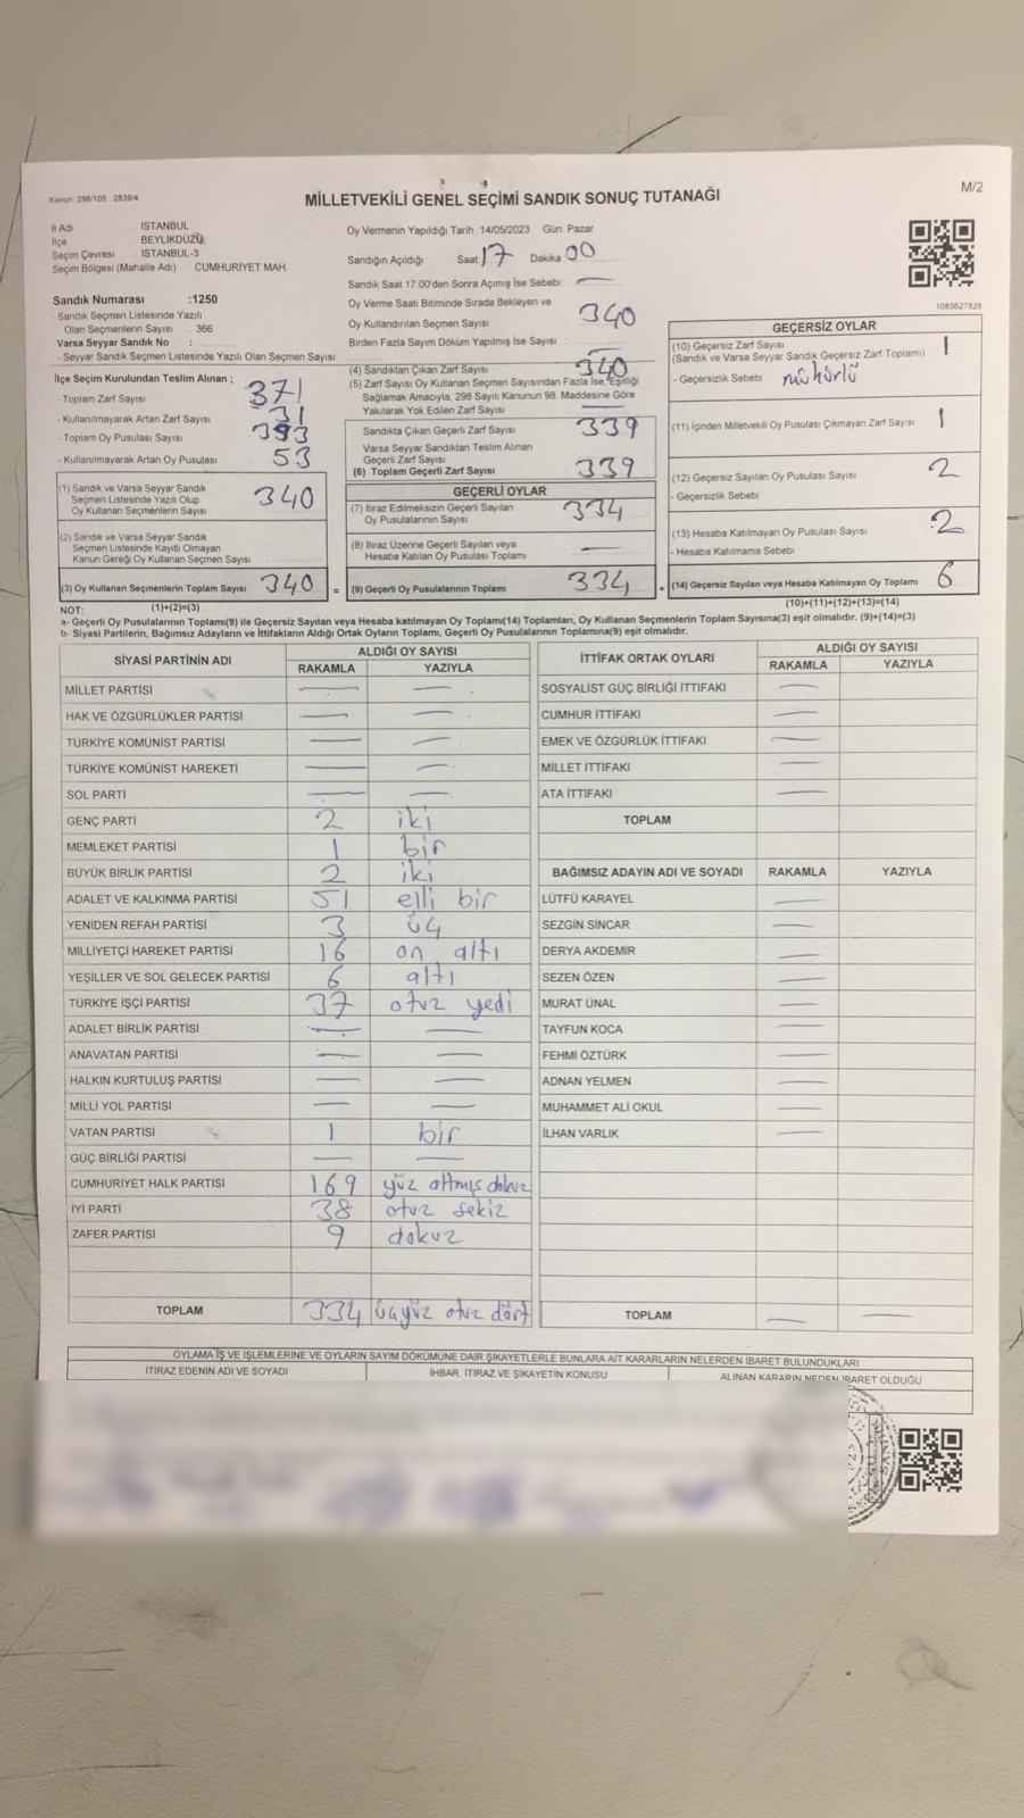 Kanun: 298/105 2839/4
M/2
MİLLETVEKİLİ GENEL SEÇİMİ SANDIK SONUÇ TUTANAĞI
İl Adı İSTANBUL
İlçe BEYLİKDÜZÜ
Seçim Çevresi İSTANBUL-3
Seçim Bölgesi (Mahalle Adı) CUMHURİYET MAH.
Sandık Numarası :1250
Sandık Seçmen Listesinde Yazılı
Olan Seçmenlerin Sayısı 366
Varsa Seyyar Sandık No :
- Seyyar Sandık Seçmen Listesinde Yazılı Olan Seçmen Sayısı
İlçe Seçim Kurulundan Teslim Alınan ;
- Toplam Zarf Sayısı 371
- Kullanılmayarak Artan Zarf Sayısı 31
- Toplam Oy Pusulası Sayısı 393
- Kullanılmayarak Artan Oy Pusulası 53
(1) Sandık ve Varsa Seyyar Sandık
Seçmen Listesinde Yazılı Olup
Oy Kullanan Seçmenlerin Sayısı 340
(2) Sandık ve Varsa Seyyar Sandık
Seçmen Listesinde Kayıtlı Olmayan
Kanun Gereği Oy Kullanan Seçmen Sayısı
(3) Oy Kullanan Seçmenlerin Toplam Sayısı 340 =
(1)+(2)=(3)
Oy Vermenin Yapıldığı Tarih :14/05/2023 Gün: Pazar
Sandığın Açıldığı Saat 17 Dakika 00
Sandık Saat 17.00'den Sonra Açılmış İse Sebebi: —
Oy Verme Saati Bitiminde Sırada Bekleyen ve
Oy Kullandırılan Seçmen Sayısı 340
Birden Fazla Sayım Döküm Yapılmış İse Sayısı : —
(4) Sandıktan Çıkan Zarf Sayısı 340
(5) Zarf Sayısı Oy Kullanan Seçmen Sayısından Fazla İse, Eşitliği
Sağlamak Amacıyla, 298 Sayılı Kanunun 98. Maddesine Göre
Yakılarak Yok Edilen Zarf Sayısı —
Sandıkta Çıkan Geçerli Zarf Sayısı 339
Varsa Seyyar Sandıktan Teslim Alınan
Geçerli Zarf Sayısı
(6) Toplam Geçerli Zarf Sayısı 339
GEÇERLİ OYLAR
(7) İtiraz Edilmeksizin Geçerli Sayılan
Oy Pusulalarının Sayısı 334
(8) İtiraz Üzerine Geçerli Sayılan veya
Hesaba Katılan Oy Pusulası Toplamı —
(9) Geçerli Oy Pusulalarının Toplamı 334 +
1080627828
GEÇERSİZ OYLAR
(10) Geçersiz Zarf Sayısı 1
(Sandık ve Varsa Seyyar Sandık Geçersiz Zarf Toplamı)
- Geçersizlik Sebebi mühürlü
(11) İçinden Milletvekili Oy Pusulası Çıkmayan Zarf Sayısı 1
(12) Geçersiz Sayılan Oy Pusulası Sayısı 2
- Geçersizlik Sebebi
(13) Hesaba Katılmayan Oy Pusulası Sayısı 2
- Hesaba Katılmama Sebebi
(14) Geçersiz Sayılan veya Hesaba Katılmayan Oy Toplamı 6
(10)+(11)+(12)+(13)=(14)
NOT:
a- Geçerli Oy Pusulalarının Toplamı(9) ile Geçersiz Sayılan veya Hesaba katılmayan Oy Toplamı(14) Toplamları, Oy Kullanan Seçmenlerin Toplam Sayısına(3) eşit olmalıdır. (9)+(14)=(3)
b- Siyasi Partilerin, Bağımsız Adayların ve İttifakların Aldığı Ortak Oyların Toplamı, Geçerli Oy Pusulalarının Toplamına(9) eşit olmalıdır.
SİYASİ PARTİNİN ADI
ALDIĞI OY SAYISI
RAKAMLA YAZIYLA
MİLLET PARTİSİ — —
HAK VE ÖZGÜRLÜKLER PARTİSİ — —
TÜRKİYE KOMÜNİST PARTİSİ — —
TÜRKİYE KOMÜNİST HAREKETİ — —
SOL PARTİ — —
GENÇ PARTİ 2 iki
MEMLEKET PARTİSİ 1 bir
BÜYÜK BİRLİK PARTİSİ 2 iki
ADALET VE KALKINMA PARTİSİ 51 elli bir
YENİDEN REFAH PARTİSİ 3 üç
MİLLİYETÇİ HAREKET PARTİSİ 16 on altı
YEŞİLLER VE SOL GELECEK PARTİSİ 6 altı
TÜRKİYE İŞÇİ PARTİSİ 37 otuz yedi
ADALET BİRLİK PARTİSİ — —
ANAVATAN PARTİSİ — —
HALKIN KURTULUŞ PARTİSİ — —
MİLLİ YOL PARTİSİ — —
VATAN PARTİSİ 1 bir
GÜÇ BİRLİĞİ PARTİSİ — —
CUMHURİYET HALK PARTİSİ 169 yüz altmış dokuz
İYİ PARTİ 38 otuz sekiz
ZAFER PARTİSİ 9 dokuz
TOPLAM 334 üçyüz otuz dört
İTTİFAK ORTAK OYLARI
ALDIĞI OY SAYISI
RAKAMLA YAZIYLA
SOSYALİST GÜÇ BİRLİĞİ İTTİFAKI —
CUMHUR İTTİFAKI —
EMEK VE ÖZGÜRLÜK İTTİFAKI —
MİLLET İTTİFAKI —
ATA İTTİFAKI —
TOPLAM
BAĞIMSIZ ADAYIN ADI VE SOYADI RAKAMLA YAZIYLA
LÜTFÜ KARAYEL —
SEZGİN SİNCAR —
DERYA AKDEMİR —
SEZEN ÖZEN —
MURAT ÜNAL —
TAYFUN KOCA —
FEHMİ ÖZTÜRK —
ADNAN YELMEN —
MUHAMMET ALİ OKUL —
İLHAN VARLIK —
TOPLAM — —
OYLAMA İŞ VE İŞLEMLERİNE VE OYLARIN SAYIM DÖKÜMÜNE DAİR ŞİKAYETLERLE BUNLARA AİT KARARLARIN NELERDEN İBARET BULUNDUKLARI
İTİRAZ EDENİN ADI VE SOYADI İHBAR, İTİRAZ VE ŞİKAYETİN KONUSU ALINAN KARARIN NEDEN İBARET OLDUĞU